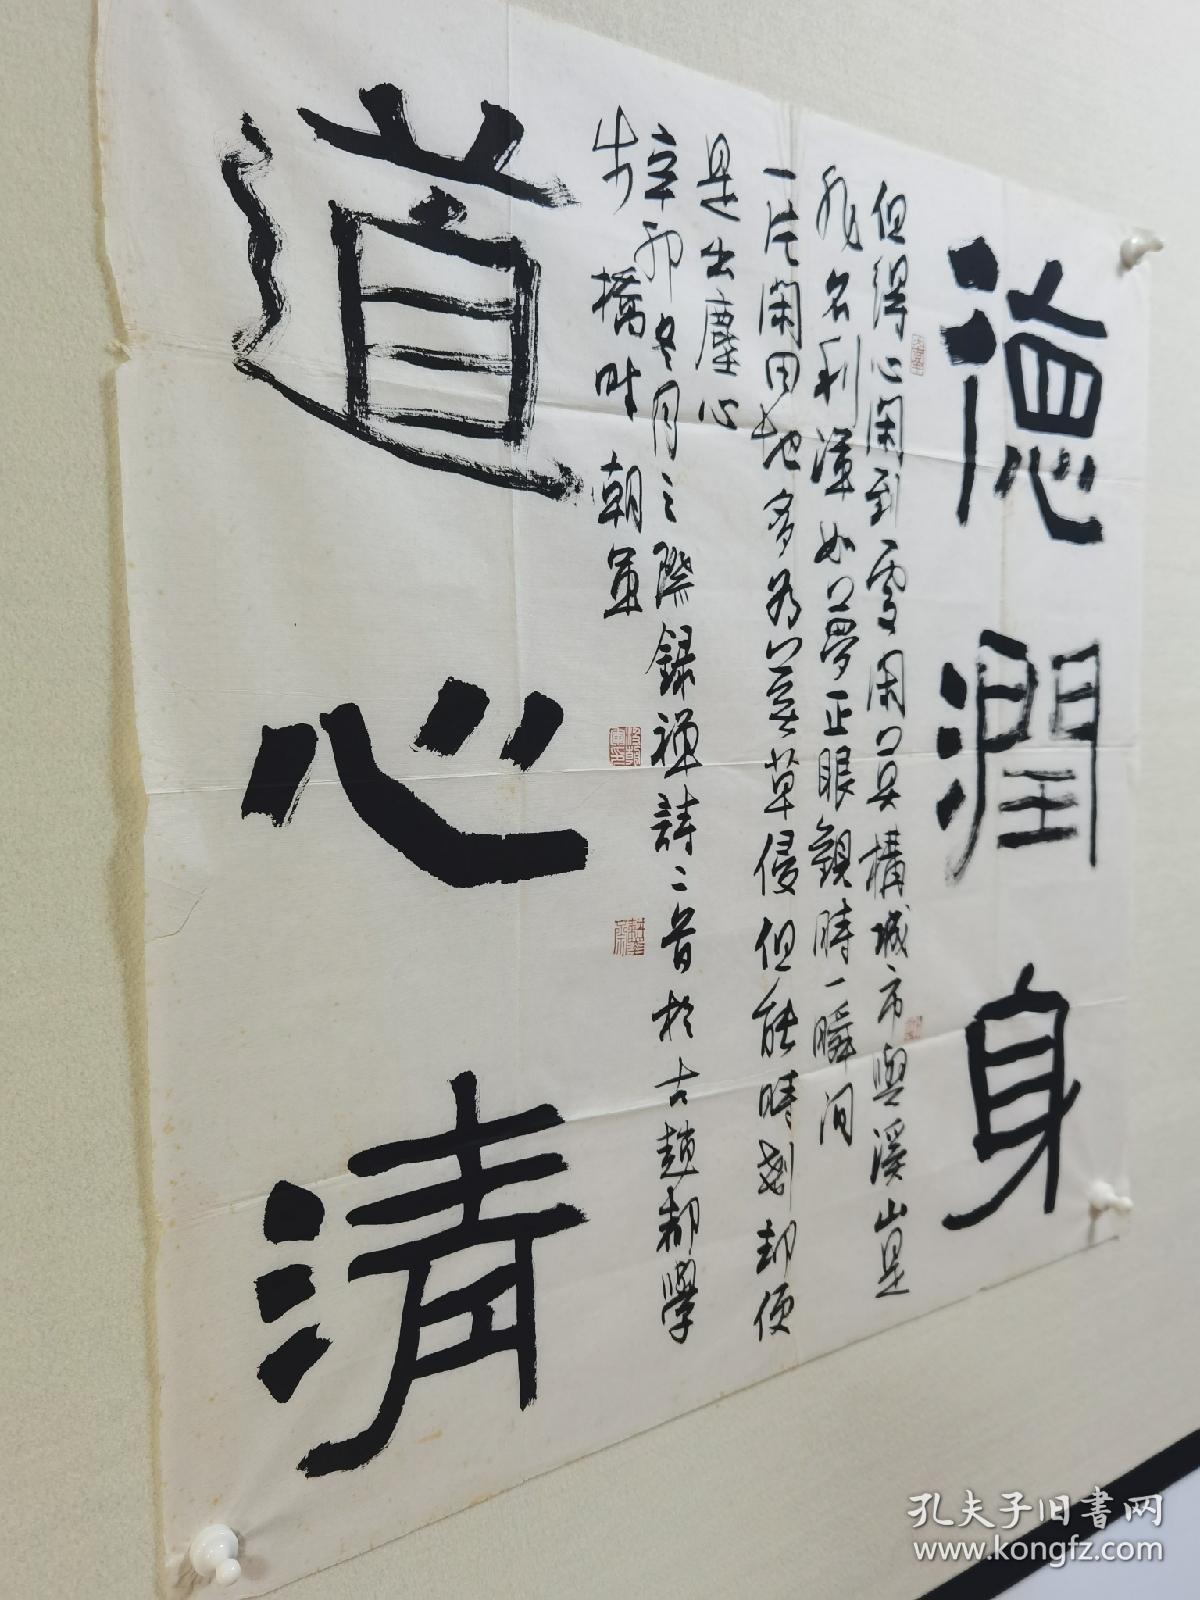 德潤身
但得心閑到處閑只具構城市與溪山是
非名利渾如夢正眼觀時一瞬间
一片閑田地多為茅草侵但能時刻却便
是出塵心
辛卯冬月之際録禪詩二首於古趙都學
步橋畔朝軍
道心清
孔夫子旧書网
www.kongfz.com